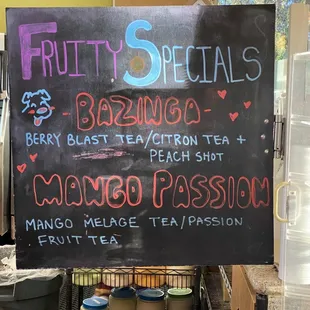 FRUITY SPECIALS
- BAZINGA -
BERRY BLAST TEA/CITRON TEA +
PEACH SHOT
MANGO PASSION
MANGO MELAGE TEA/PASSION
FRUIT TEA